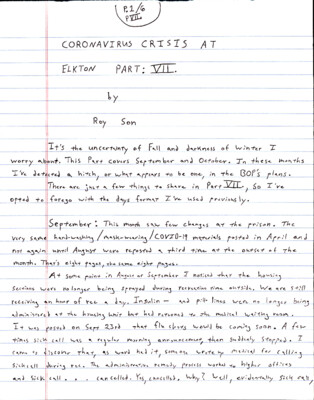 P.1/6
PVII
CORONAVIRUS CRISIS AT
ELKTON PART: VII.
by
Roy Son
It's the uncertainty of Fall and darkness of winter I
worry about. This Part covers September and October. In these months
I've detected a hitch, or what appears to be one, in the BOP's plans.
There are just a few things to share in Part VII, so I've
opted to forego with the days format I've used previously.
September: This month saw few changes at the prison. The
very same hand-washing/mask-wearing/COVID-19 memorials posted in April and
not again until August were reposted a third time at the outset of the
month. That's eight pages, the same eight pages.
At some point in August or September I noticed that the housing
were no longer being sprayed during recreation time outside. We are still
receiving an hour of rec a day. Insulin and pill lines were no longer being
administered at the housing units but had returned to the medical waiting room.
It was posted on Sept 23rd that flu shots would be coming soon. A few
times sick call was a regular morning announcement, then suddenly stopped. I
came to discover that, as word had it, someone wrote up medical for calling
sick call during rec. The administrative remedy process worked to higher offices
and sick call . . . cancelled. Yes, cancelled. Why? Well, evidentally sick call,